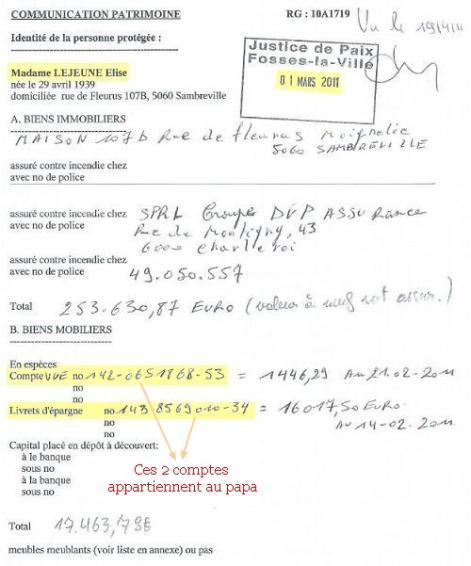 COMMUNICATION PATRIMOINE RG : 10A1719 Vu le 19/4/11
Identité de la personne protégée :
Justice de Paix
Fosses-la-Ville
01 MARS 2011
Madame LEJEUNE Elise
née le 29 avril 1939
domiciliée rue de Fleurus 107B, 5060 Sambreville
A. BIENS IMMOBILIERS
MAISON 107b Rue de fleurus Moignelée
5060 SAMBREVILLE
assuré contre incendie chez
avec no de police
assuré contre incendie chez SPRL Groupe DVP ASSURance
avec no de police Rue de Montigny, 43
6000 Charleroi
assuré contre incendie chez
avec no de police 49.050.557
Total 253.630,87 EURO (valeur à neuf
B. BIENS MOBILIERS
En espèces
Compte VUE no 142-0651868-53 = 1446,29 AU 21-02-2011
no
no
Livrets d'épargne no 143 8569010-34 = 16017,50 EURO
no AU 14-02-2011
no
Capital placé en dépôt à découvert:
à le banque
sous no
à la banque
sous no
Ces 2 comptes
appartiennent au papa
Total 17.463,79E
meubles meublants (voir liste en annexe) ou pas